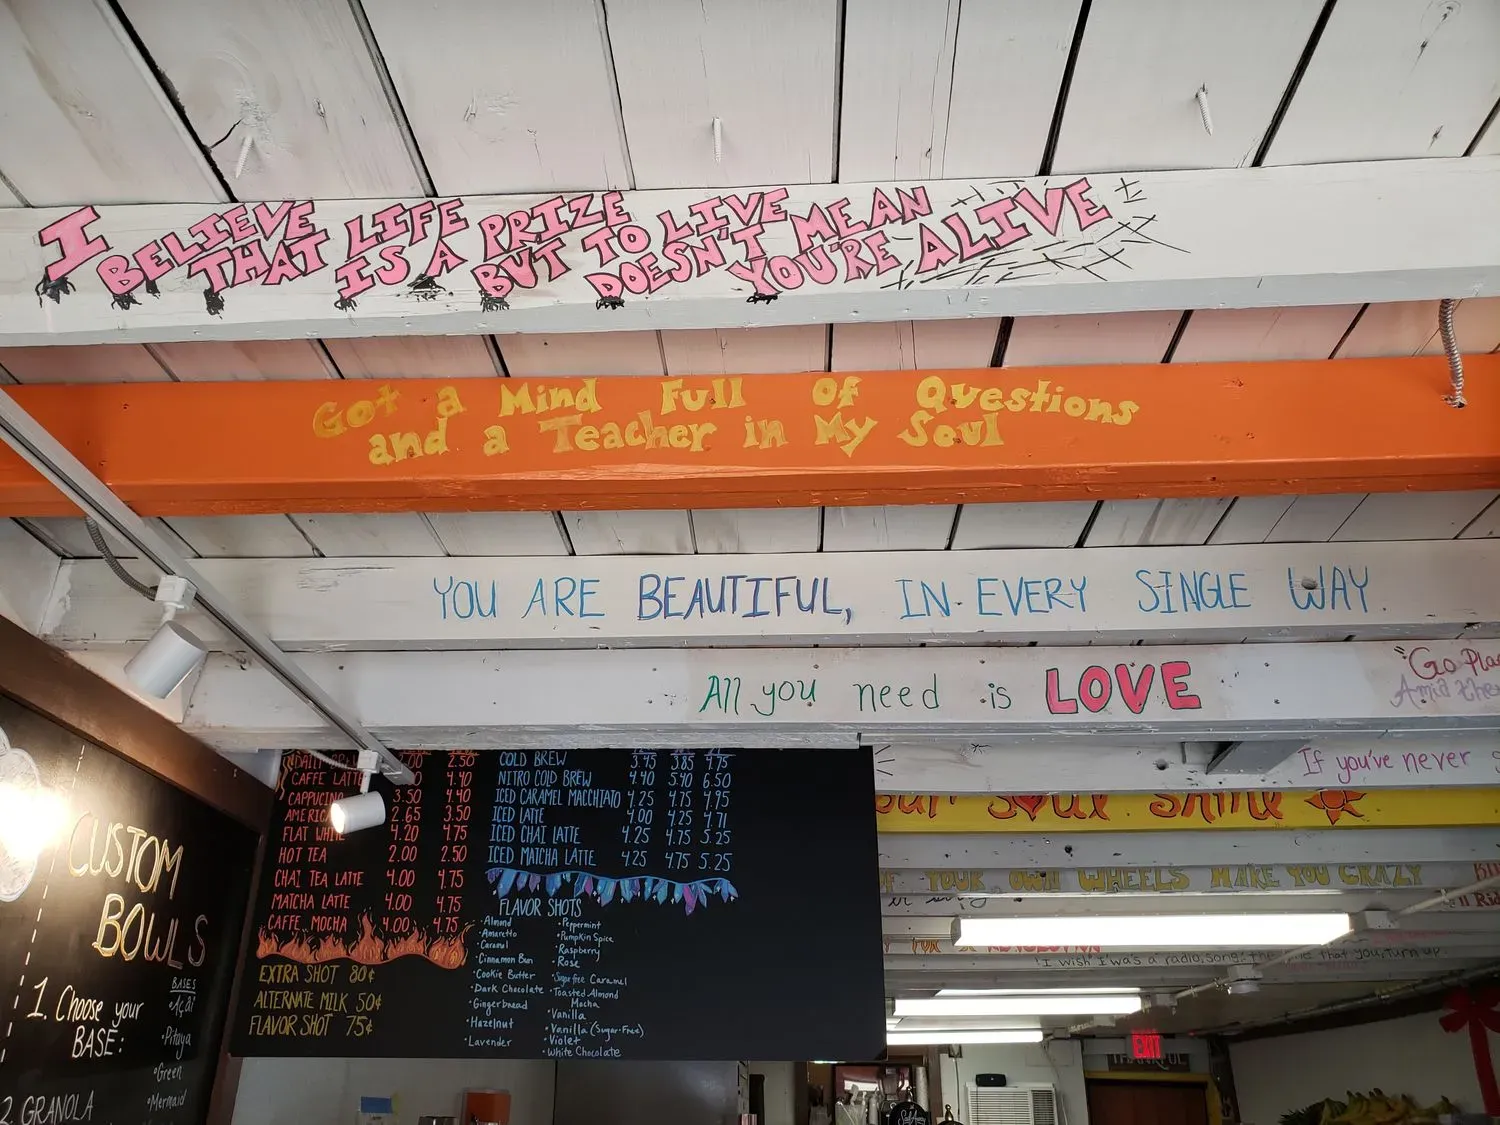 I BELIEVE THAT LIFE IS A PRIZE BUT TO LIVE DOESN'T MEAN YOU'RE ALIVE
Got a Mind Full of Questions
and a Teacher in My Soul
YOU ARE BEAUTIFUL, IN EVERY SINGLE WAY.
All you need is LOVE
"Go
Amid the
If you've never
Soul Shine
OF YOUR OWN WHEELS MAKE YOU CRAZY
I wish I was a radio song, the one that you turn up
2.50
CAFFE LATTE 4.40
CAPPUCINO 3.50 4.40
2.65 3.50
FLAT WHITE 4.20 4.75
HOT TEA 2.00 2.50
CHAI TEA LATTE 4.00 4.75
MATCHA LATTE 4.00 4.75
CAFFE MOCHA 4.00 4.75
EXTRA SHOT 80¢
ALTERNATE MILK 50¢
FLAVOR SHOT 75¢
COLD BREW 3.45 3.85 4.75
NITRO COLD BREW 4.40 5.40 6.50
ICED CARAMEL MACCHIATO 4.25 4.75 4.95
ICED LATTE 4.00 4.25 4.71
ICED CHAI LATTE 4.25 4.75 5.25
ICED MATCHA LATTE 4.25 4.75 5.25
FLAVOR SHOTS
• Almond
• Amaretto
• Caramel
• Cinnamon Bun
• Cookie Butter
• Dark Chocolate
• Gingerbread
• Hazelnut
• Lavender
• Peppermint
• Pumpkin Spice
• Raspberry
• Rose
• Sugar free Caramel
• Toasted Almond
Mocha
• Vanilla
• Vanilla (Sugar-Free)
• Violet
• White Chocolate
CUSTOM
BOWLS
1. Choose your
BASE:
BASES
• Açai
• Pitaya
• Green
• Mermaid
2. GRANOLA
EXIT
THANKFUL